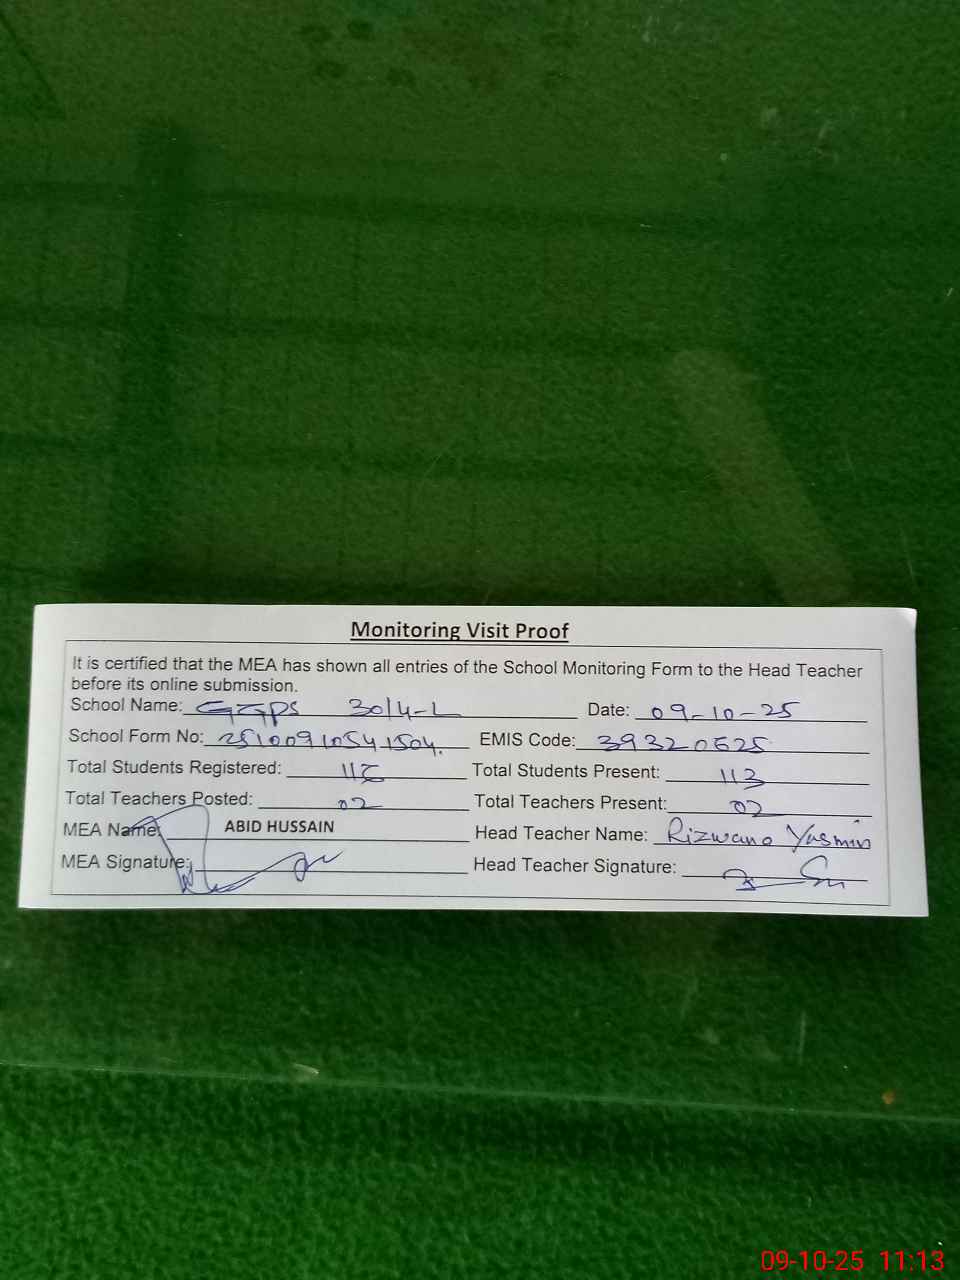 Monitoring Visit Proof
It is certified that the MEA has shown all entries of the School Monitoring Form to the Head Teacher
before its online submission.
School Name: GGPS 30/4-L Date: 09-10-25
School Form No: 25100910541504. EMIS Code: 39320625
Total Students Registered: Total Students Present: 113
Total Teachers Posted: 02 Total Teachers Present: 02
MEA Name: ABID HUSSAIN Head Teacher Name: Rizwana Yasmin
MEA Signature: Head Teacher Signature:
09-10-25 11:13